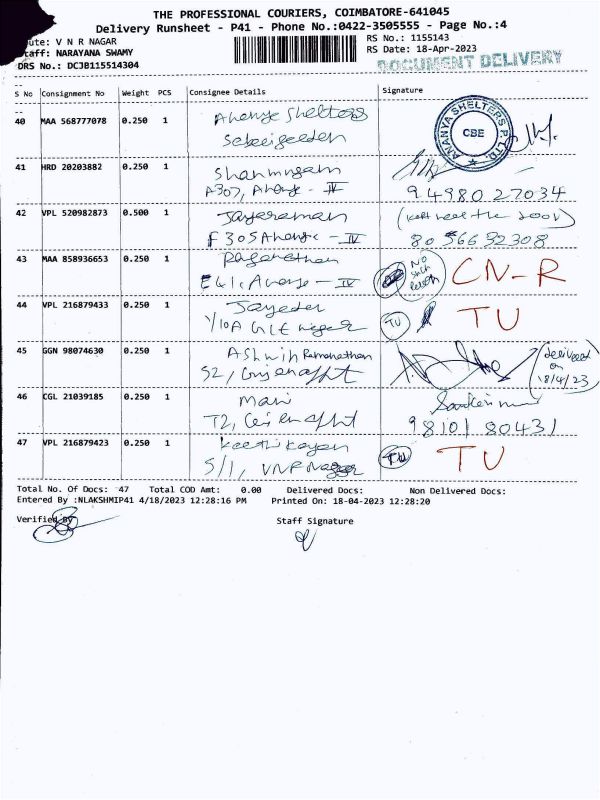 THE PROFESSIONAL COURIERS, COIMBATORE-641045
Delivery Runsheet - P41 - Phone No.:0422-3505555 - Page No.:4
ute: V N R NAGAR
RS No.: 1155143
taff: NARAYANA SWAMY
RS Date: 18-Apr-2023
DRS No.: DCJB115514304
DOCUMENT DELIVERY
S No Consignment No Weight PCS Consignee Details Signature
40 MAA 568777078 0.250 1 Ananya Shelters
ANANYA SHELTERS P. LTD.
CBE
41 HRD 20203882 0.250 1 Shanmugam
A307, Ananya - IV
94980 27034
42 VPL 520982873 0.500 1 Jayaraman
(kept near the door)
F 305 Ananya - IV
80 56692308
43 MAA 858936653 0.250 1
No such person
CN-R
E61, Ananya - IV
44 VPL 216879433 0.250 1
TU TU
45 GGN 98074630 0.250 1 Ashwin Ramanathan
delivered on 18/4/23
S2,
46 CGL 21039185 0.250 1 Mani
T2,
98101 80431
47 VPL 216879423 0.250 1 Keerthikayan
TU TU
S/1, VNR Nagar
Total No. Of Docs: 47 Total COD Amt: 0.00 Delivered Docs: Non Delivered Docs:
Entered By :NLAKSHMIP41 4/18/2023 12:28:16 PM Printed On: 18-04-2023 12:28:20
Verified By
Staff Signature